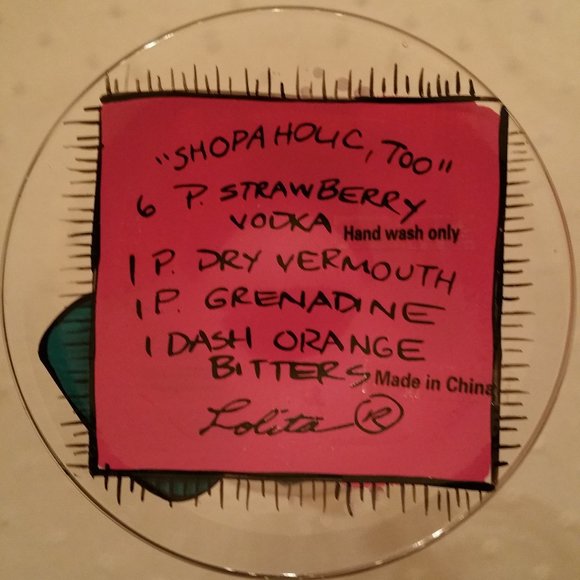 "SHOPAHOLIC, TOO"
6 P. STRAWBERRY
VODKA
Hand wash only
1 P. DRY VERMOUTH
1 P. GRENADINE
1 DASH ORANGE
BITTERS
Made in China
Lolita ®